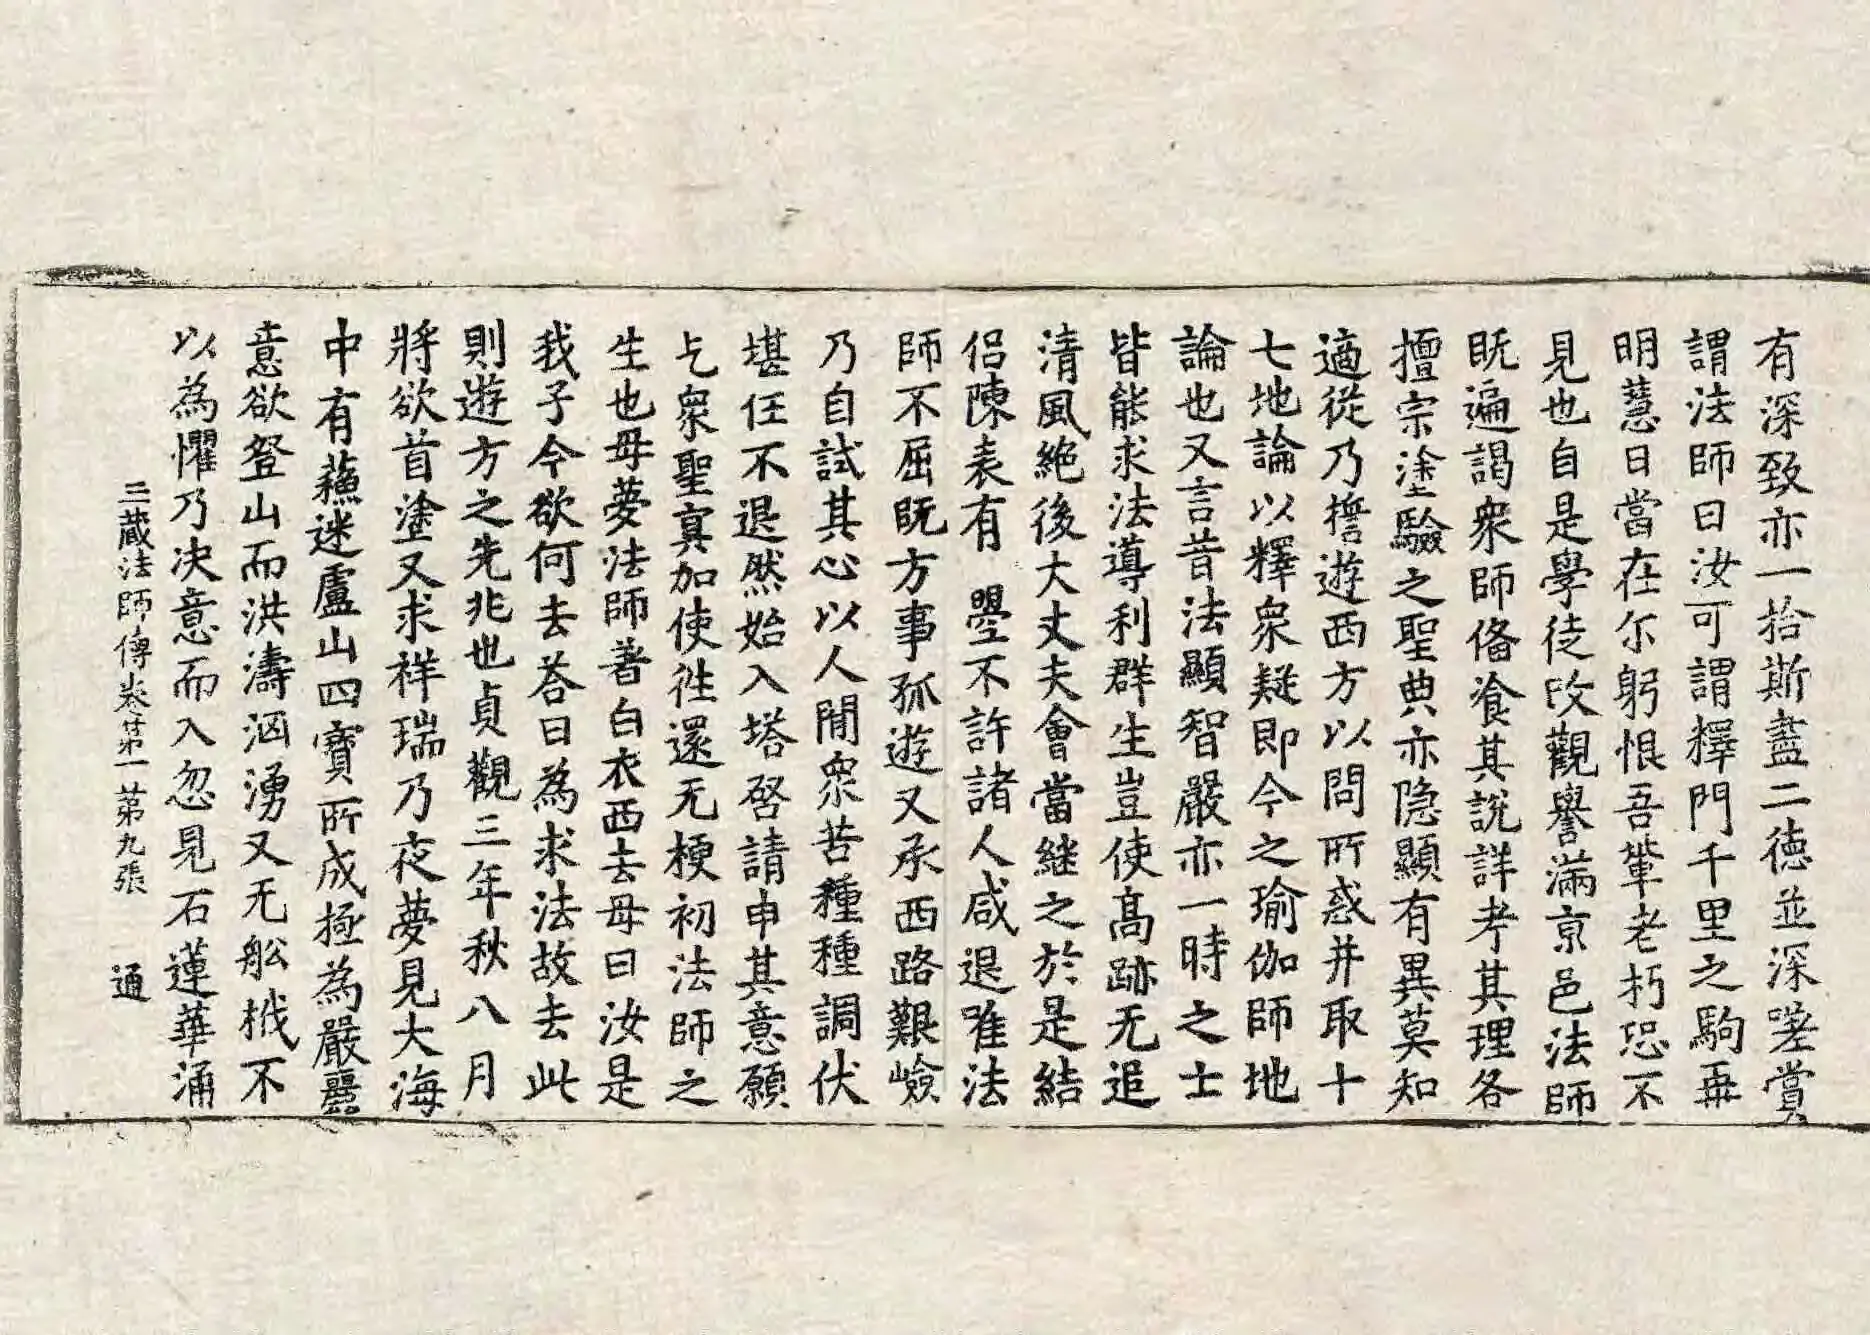 有深致亦一拾斯盡二德並深嗟賞
謂法師曰汝可謂釋門千里之駒再
明慧日當在尒躬恨吾輩老朽恐不
見也自是學徒改觀譽滿京邑法師
旣遍謁衆師俻飡其說詳考其理各
擅宗塗驗之聖典亦隐顯有異莫知
適從乃擔遊西方以問所惑并取十
七地論以釋衆疑即今之瑜伽師地
論也又言昔法顯智嚴亦一時之士
皆能求法導利群生豈使髙跡无追
清風絶後大丈夫會當継之於是結
侣陳表有　詔不許諸人咸退唯法
師不屈旣方事孤遊又承西路艱嶮
乃自試其心以人閒衆苦種種調伏
堪任不退然始入塔啓請申其意願
乞衆聖冥加使徃還无梗初法師之
生也母夢法師著白衣西去母曰汝是
我子今欲何去荅曰為求法故去此
則遊方之先兆也貞觀三年秋八月
將欲首塗又求祥瑞乃夜夢見大海
中有蘓迷盧山四寶所成極為嚴麗
意欲登山而洪濤洶湧又无舩栰不
以為懼乃决意而入忽見石蓮華涌
三藏法師傳卷苐一　苐九張　通